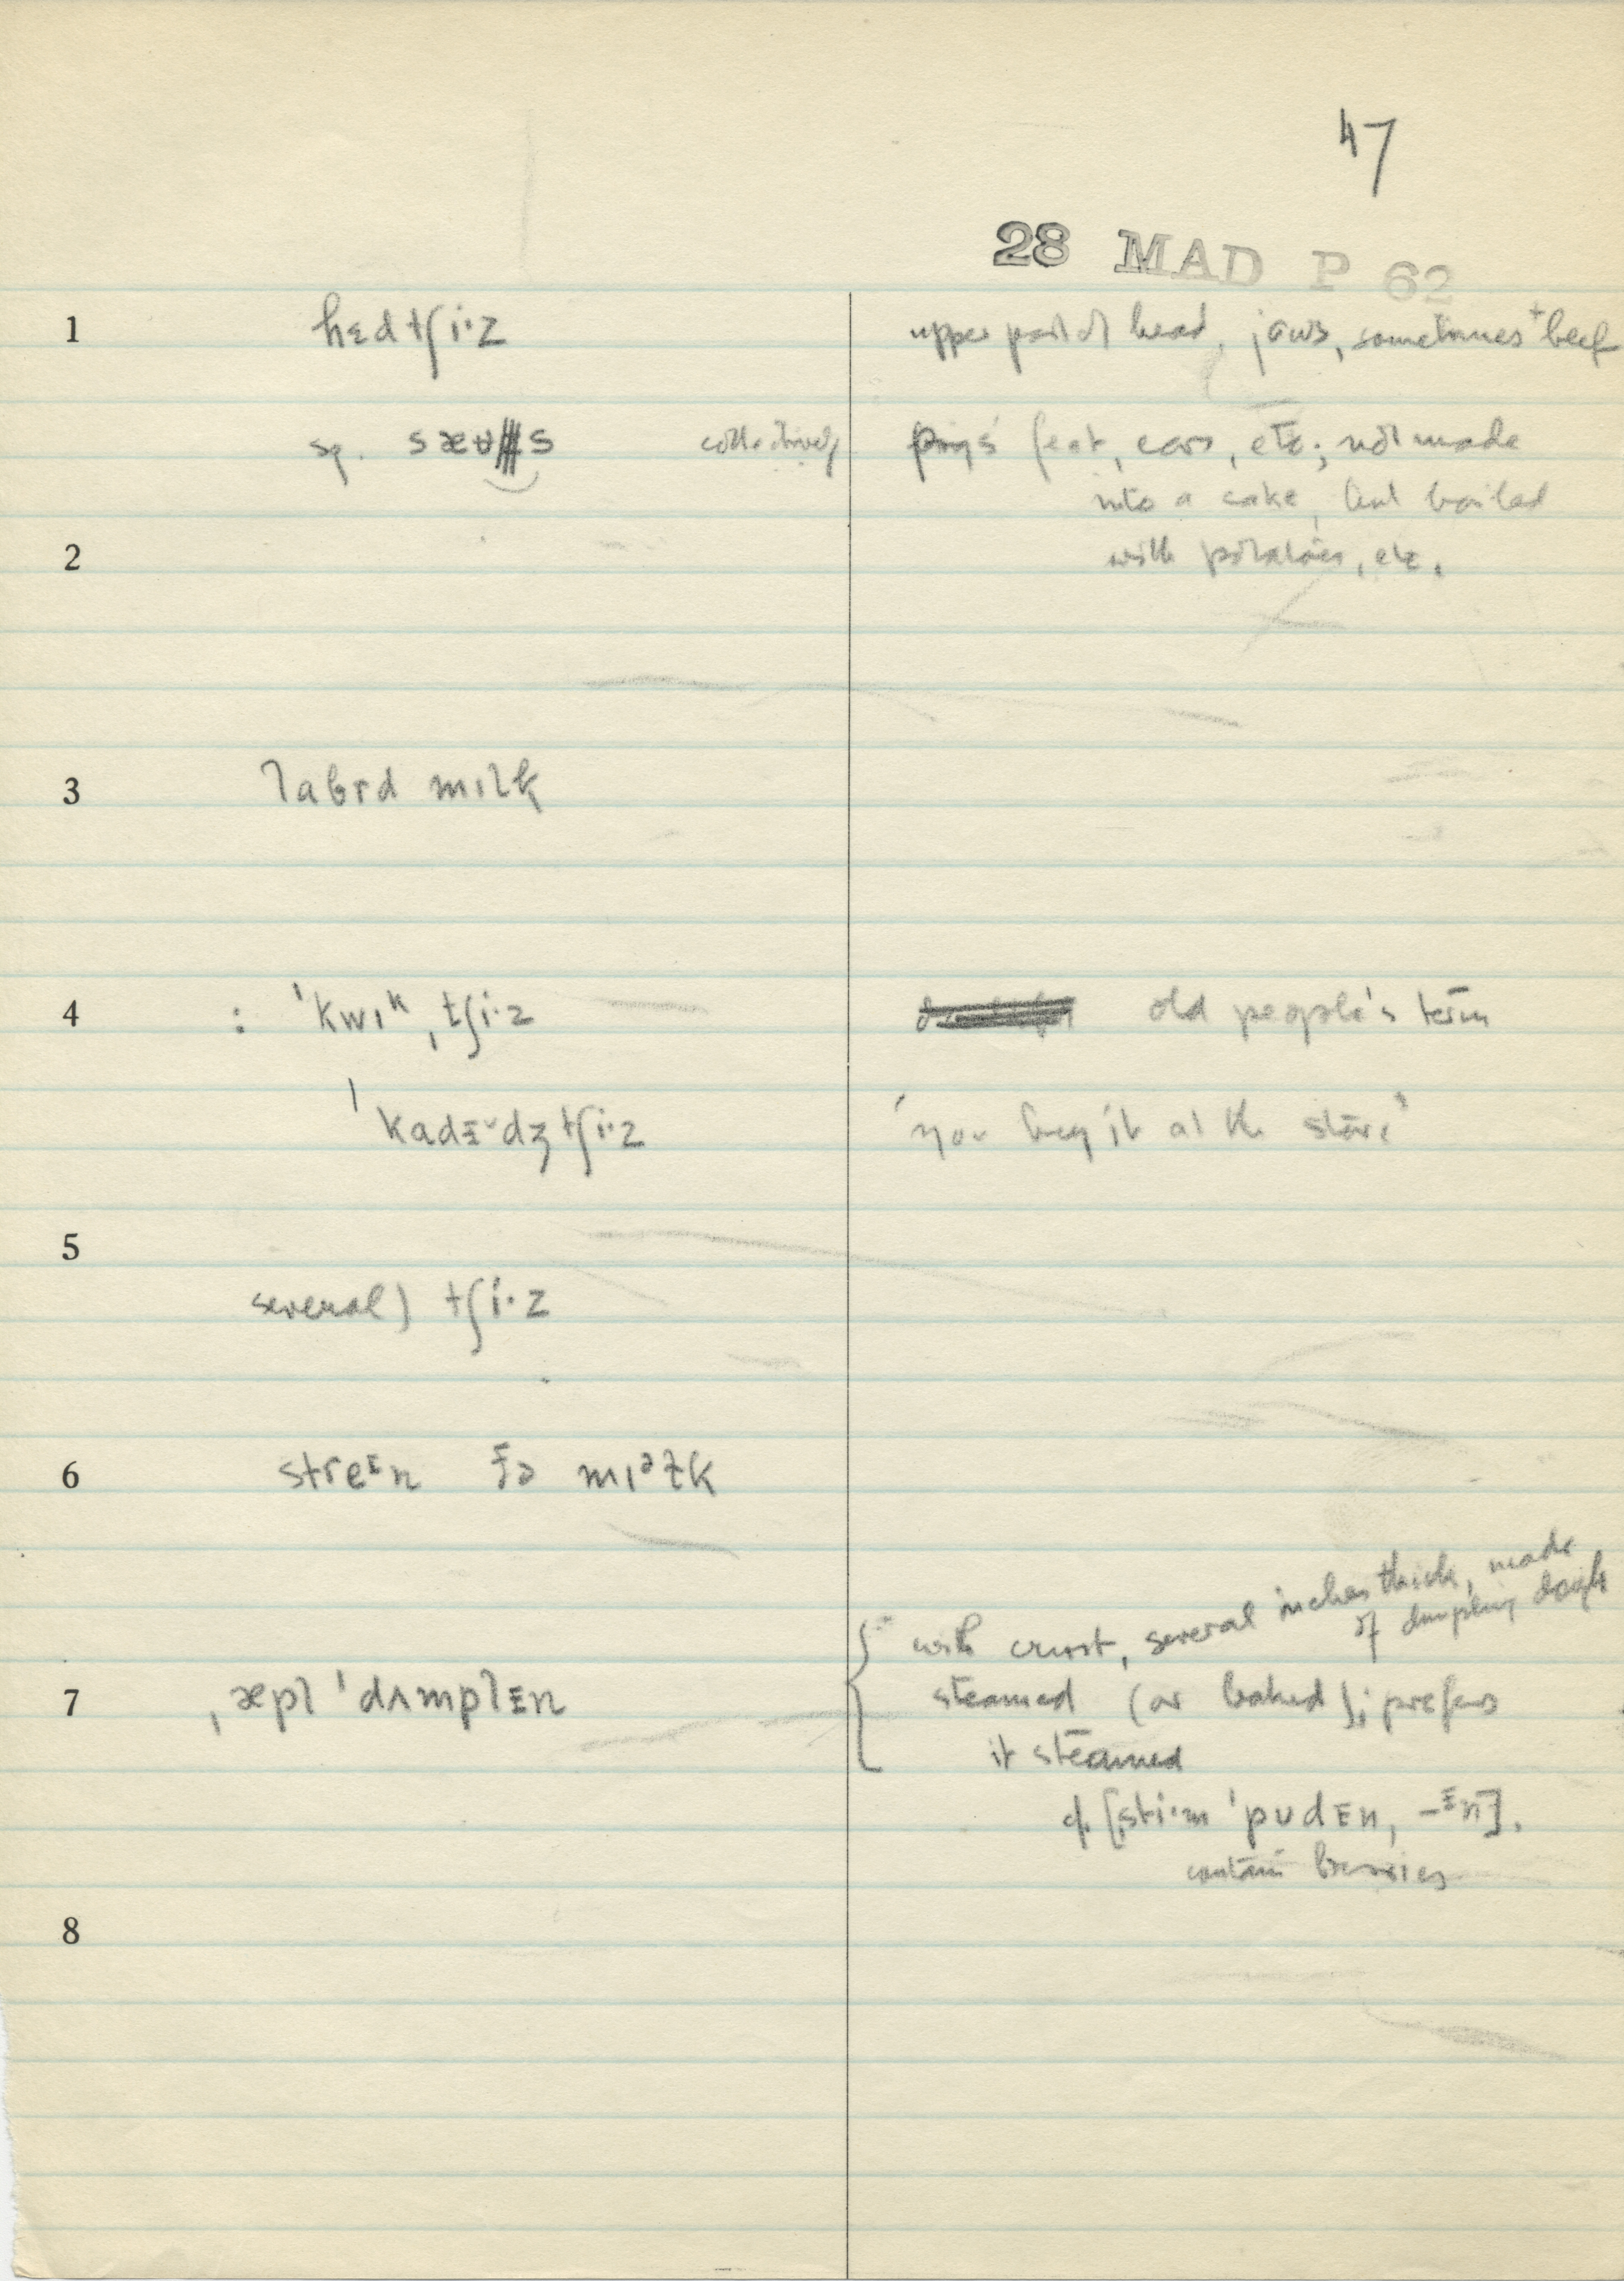 47
28 MAD P 62
1 hɛdtʃi·z upper part of head, jaws, sometimes + beef
sp. sæʊs collectively pigs' feet, ears, etc.; not made
into a cake, but boiled
2 with potatoes, etc.
3 labɚd mɪlk
4 : ˈkwɪᵏˌtʃi·z old people's term
ˈkadᴇ˅dʒtʃi·z 'you buy it at the store'
5
several) tʃi·z
6 streᴵn ðə mɪᵊɫk
with crust, several inches thick, made
of dumpling dough
7 ˌæpl ˈdʌmplᴇn steamed (or baked); prefers
it steamed
cf. [ˌsti·m ˈpudᴇn, -ᴵn].
contain berries
8